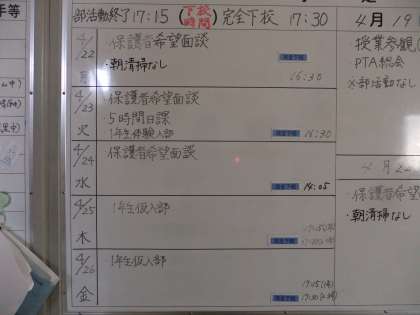 部活動終了 17:15 (下校時間) 完全下校 17:30
4/22 月
・保護者希望面談
・朝清掃なし
完全下校 16:30
4/23 火
保護者希望面談
・5時間日課
1年生体験入部
完全下校 16:30
4/24 水
保護者希望面談
完全下校 14:05
4/25 木
1年生仮入部
完全下校
4/26 金
1年生仮入部
完全下校
4月19
授業参観
PTA総会
※部活動なし
4月22
・保護者希望
・朝清掃なし